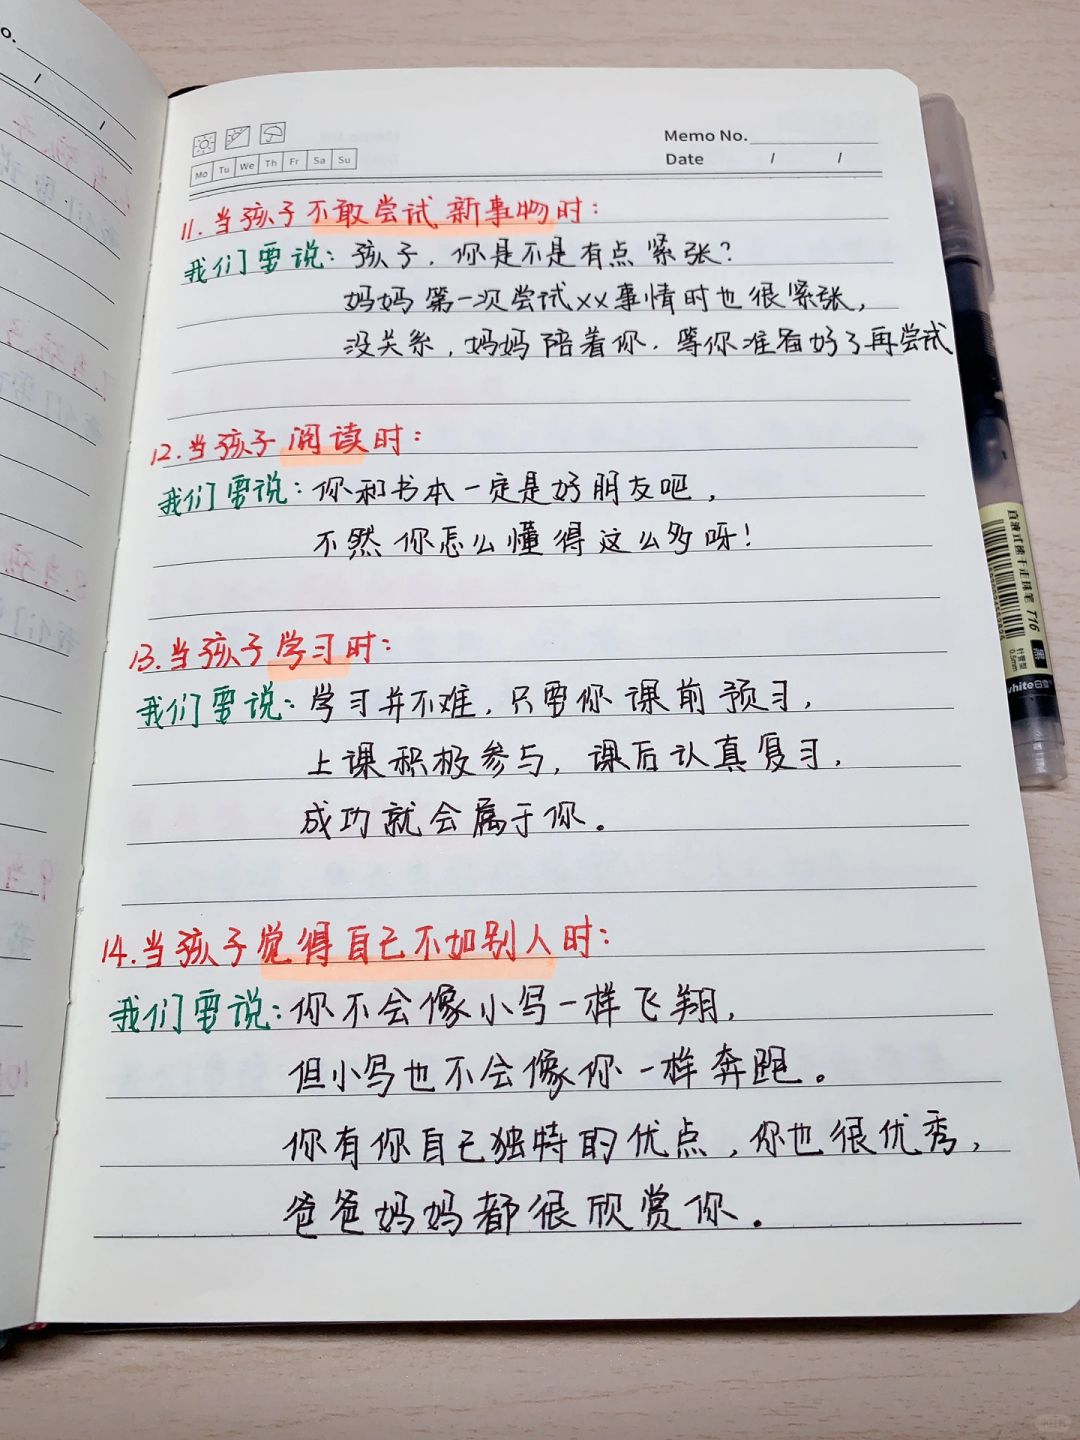 Memo No.
Mo Tu We Th Fr Sa Su
Date / /
11.当孩子不敢尝试新事物时:
我们要说:孩子,你是不是有点紧张?
妈妈第一次尝试xx事情时也很紧张,
没关系,妈妈陪着你.等你准备好了再尝试
12.当孩子阅读时:
我们要说:你和书本一定是好朋友吧,
不然你怎么懂得这么多呀!
13.当孩子学习时:
我们要说:学习并不难,只要你课前预习,
上课积极参与,课后认真复习,
成功就会属于你。
14.当孩子觉得自己不如别人时:
我们要说:你不会像小鸟一样飞翔,
但小鸟也不会像你一样奔跑。
你有你自己独特的优点,你也很优秀,
爸爸妈妈都很欣赏你。
直液式速干走珠笔 T16 黑
0.5mm
white白雪